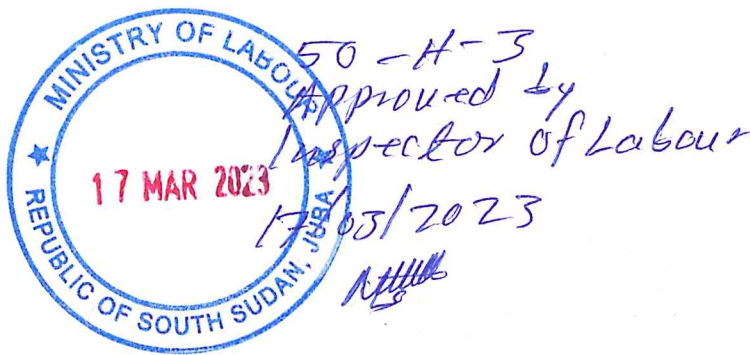 MINISTRY OF LABOUR
REPUBLIC OF SOUTH SUDAN, JUBA
17 MAR 2023
50-H-3
Approved by
Inspector of Labour
17/03/2023